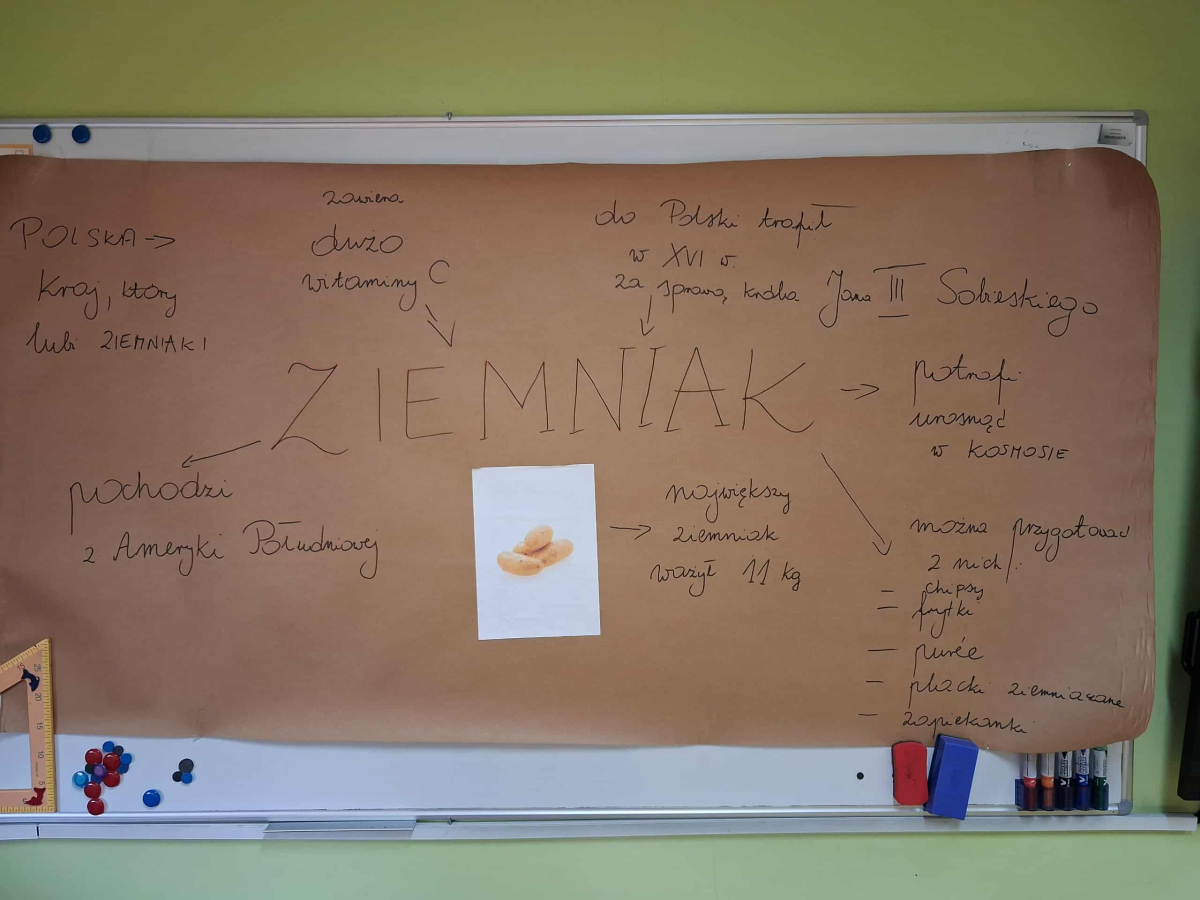 POLSKA →
Kraj, który
lubi ZIEMNIAKI
zawiera
dużo
witaminy C
do Polski trafił
w XVI w.
za sprawą króla Jana III Sobieskiego
ZIEMNIAK
potrafi
urosnąć
w KOSMOSIE
pochodzi
z Ameryki Południowej
największy
ziemniak
ważył 11 kg
można przygotować
z nich:
- chipsy
- frytki
- purée
- placki ziemniaczane
- zapiekanki